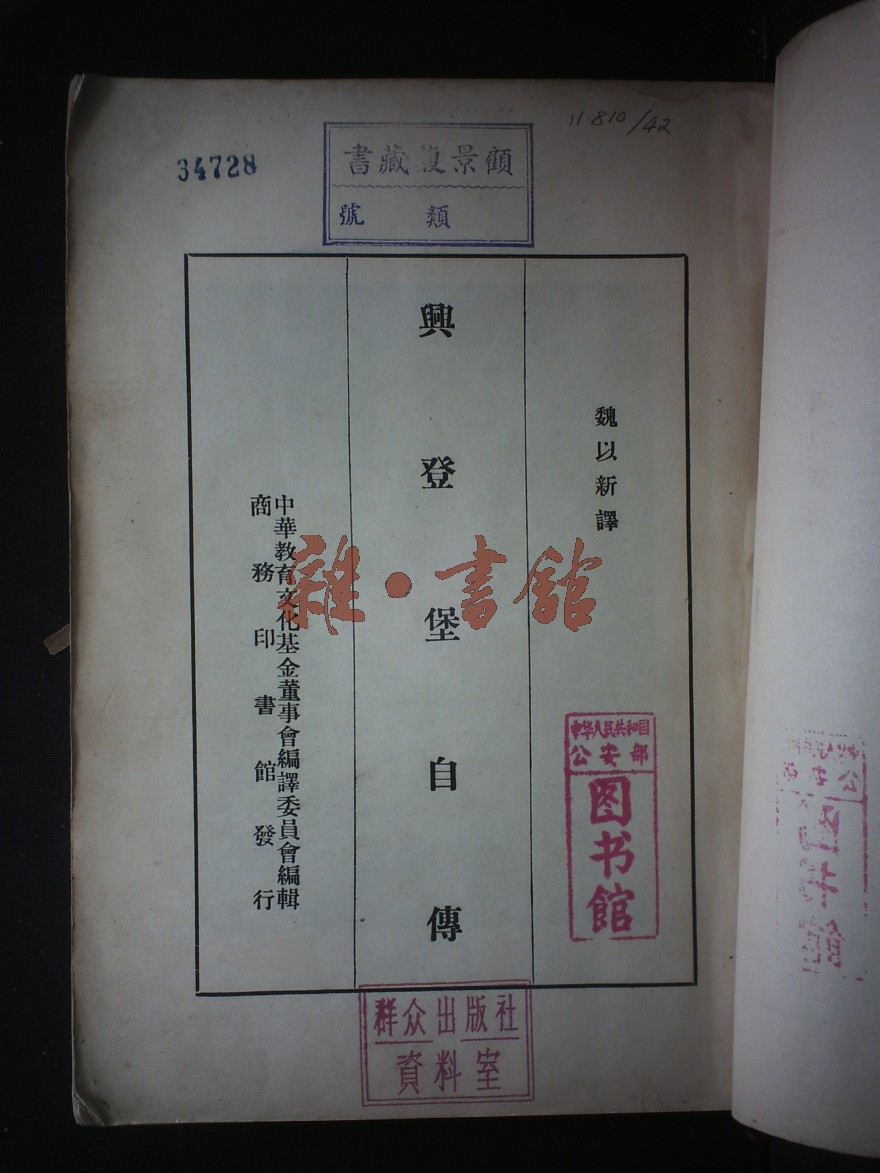 11·810/42
34728
顧景復藏書
類 號
魏以新譯
興登堡自傳
中華教育文化基金董事會編譯委員會編輯
商務印書館發行
雜·書館
中华人民共和国
公安部
图书馆
群众出版社
資料室